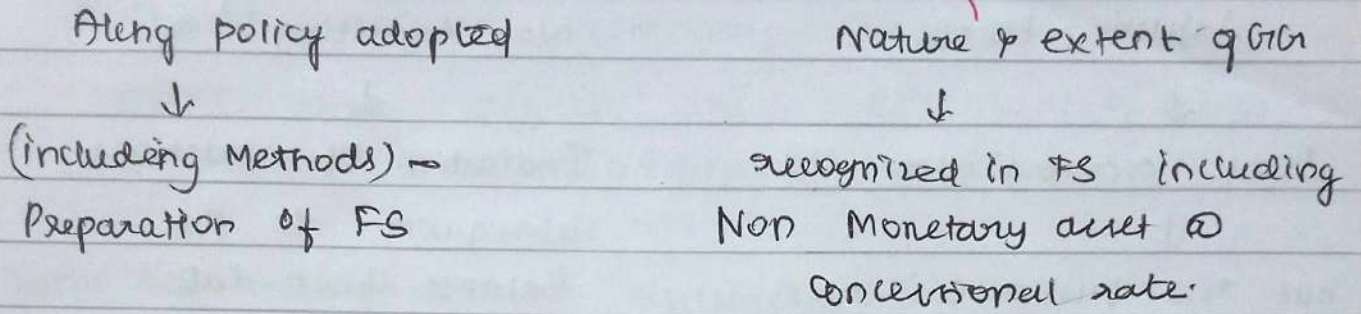 Actng policy adopted
↓
(including Methods) -
Preparation of FS
Nature & extent of GG
↓
recognized in FS including
Non Monetary asset @
concessional rate.